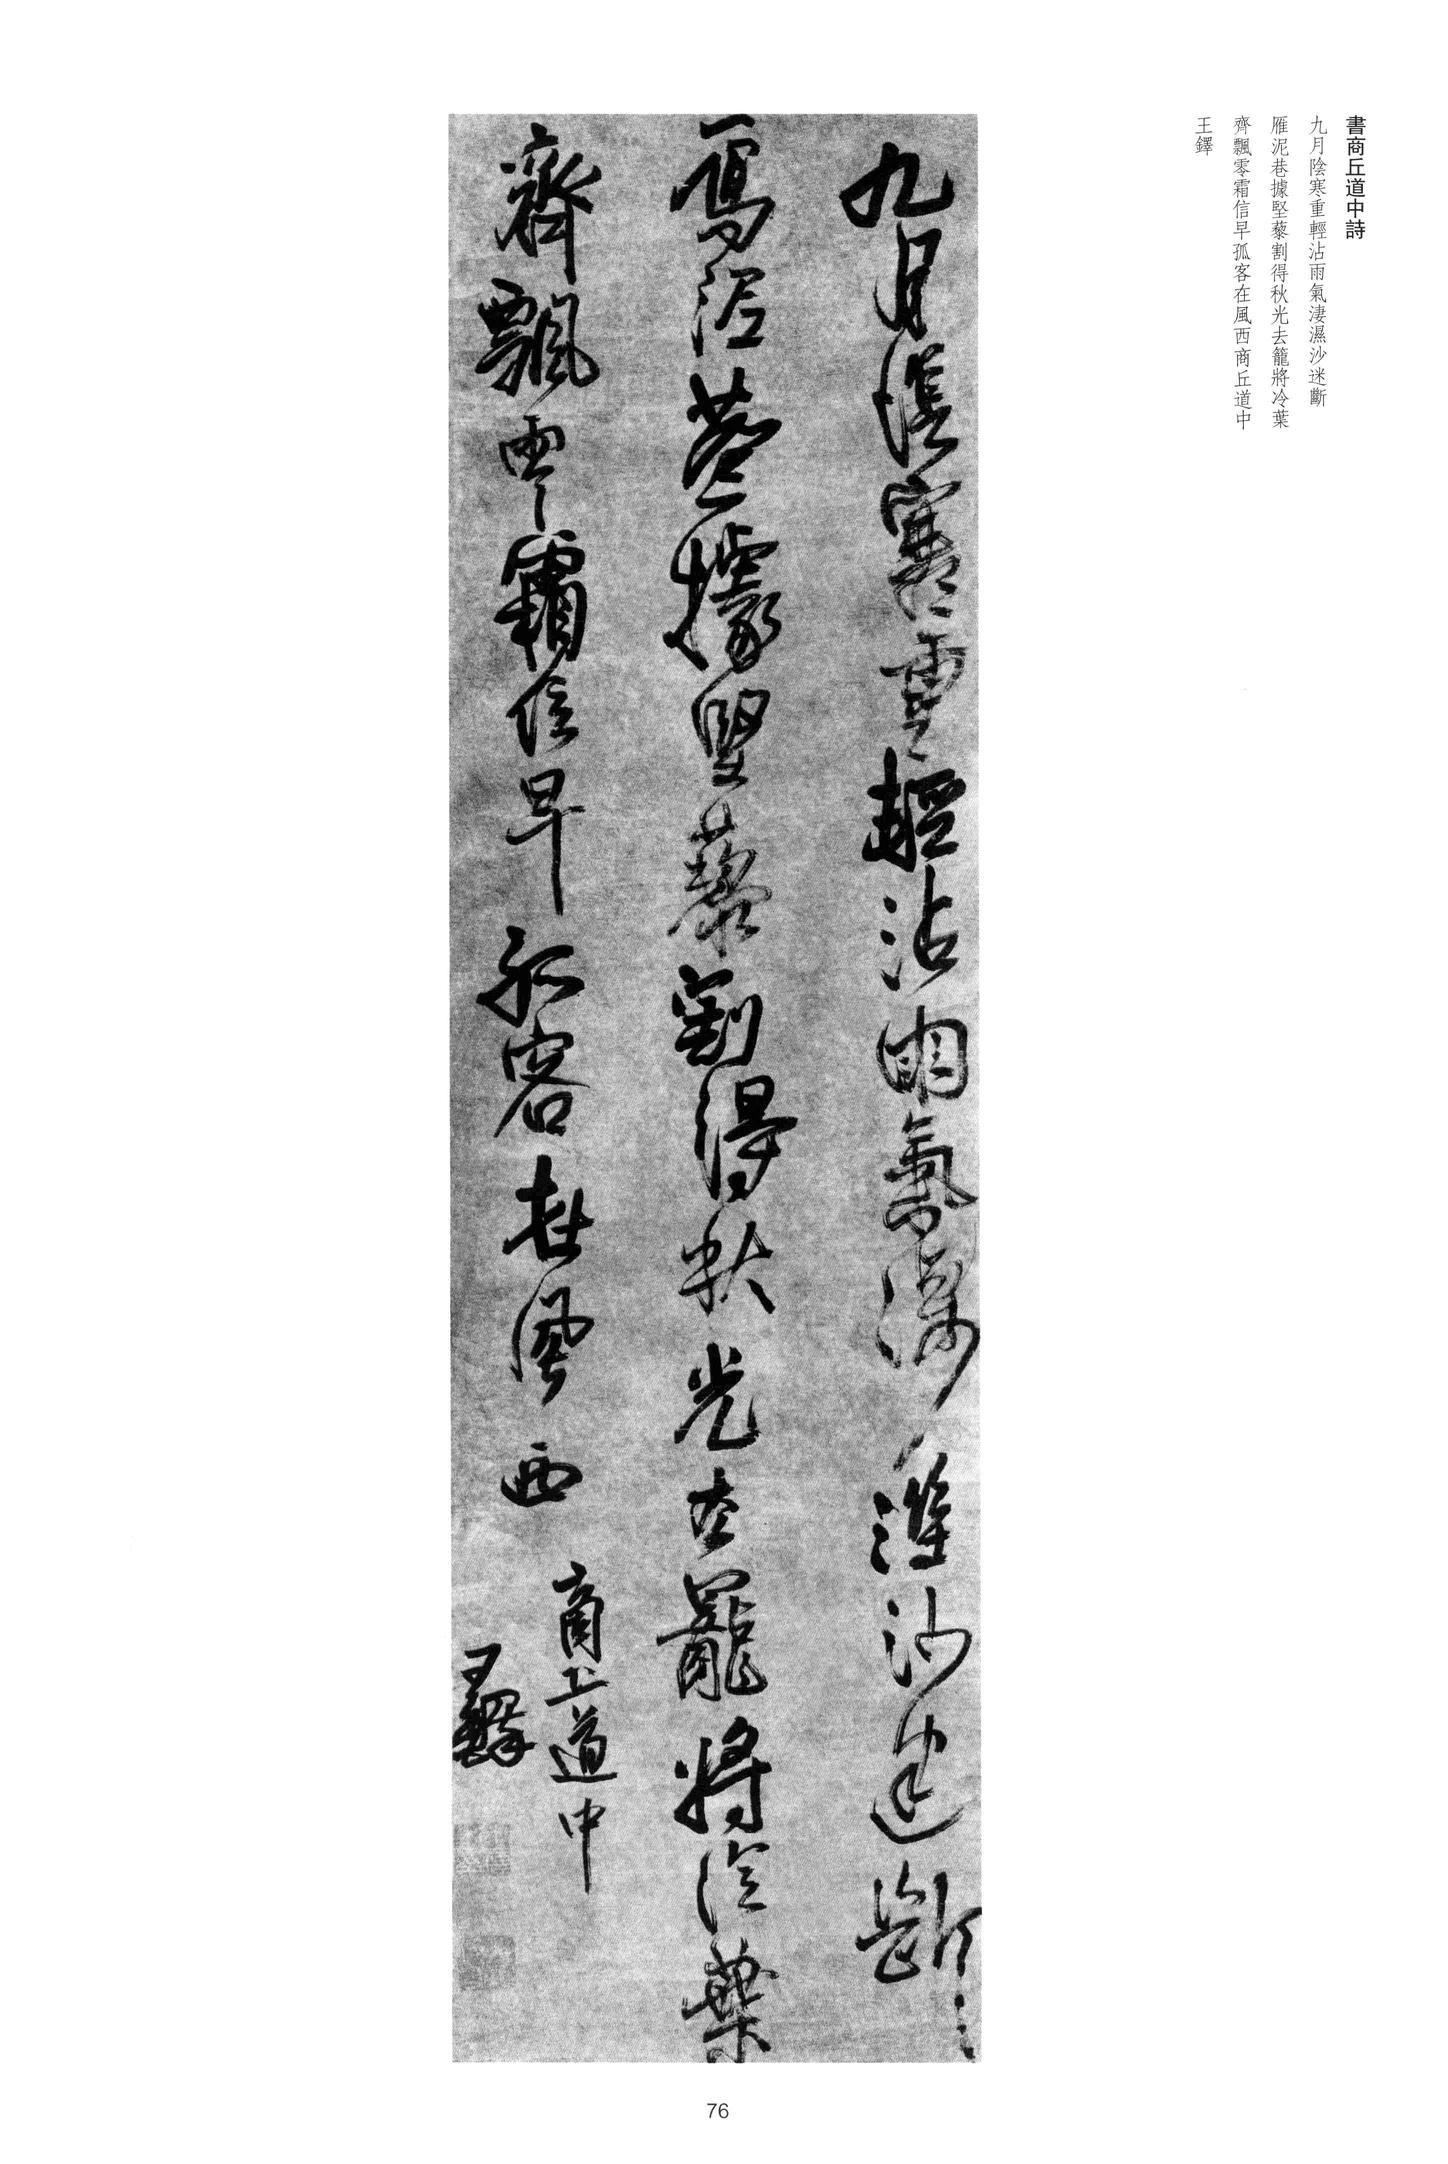 書商丘道中詩
九月陰寒重輕沾雨氣淒濕沙迷斷
雁泥巷據堅藜割得秋光去籠將冷葉
齊飄零霜信早孤客在風西商丘道中
王鐸
九月陰寒重輕沾雨氣淒濕沙迷斷
雁泥巷據堅藜割得秋光去籠將冷葉
齊飄零霜信早孤客在風西
商丘道中
王鐸
76